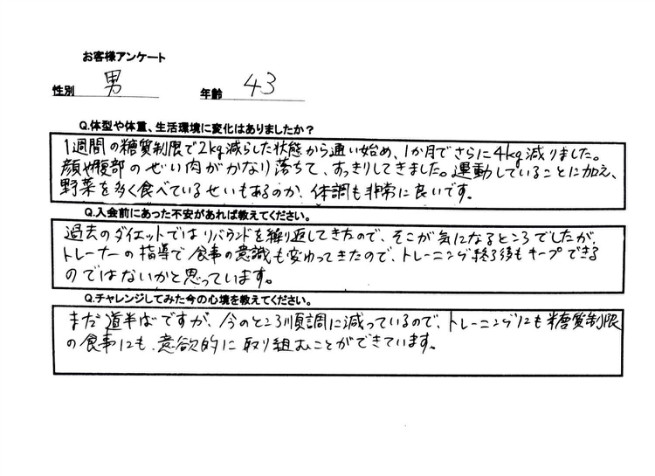 お客様アンケート
性別 男 年齢 43
Q.体型や体重、生活環境に変化はありましたか?
1週間の糖質制限で2kg減らした状態から通い始め、1か月でさらに4kg減りました。
顔や腹部のぜい肉がかなり落ちて、すっきりしてきました。運動していることに加え、
野菜を多く食べているせいもあるのか、体調も非常に良いです。
Q.入会前にあった不安があれば教えてください。
過去のダイエットではリバウンドを繰り返してきたので、そこが気になるところでしたが、
トレーナーの指導で食事の意識も変わってきたので、トレーニング終了後もキープできる
のではないかと思っています。
Q.チャレンジしてみた今の心境を教えてください。
まだ道半ばですが、今のところ順調に減っているので、トレーニングにも糖質制限
の食事にも、意欲的に取り組むことができています。